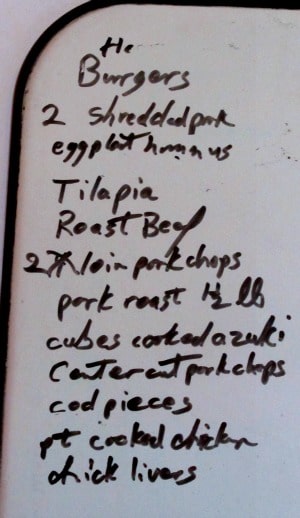 He
Burgers
2 shredded pork
eggplant hummus
Tilapia
Roast Beef
2 loin pork chops
pork roast 1½ lb
cubes cooked azuki
Center cut pork chops
cod pieces
pt cooked chicken
chick livers